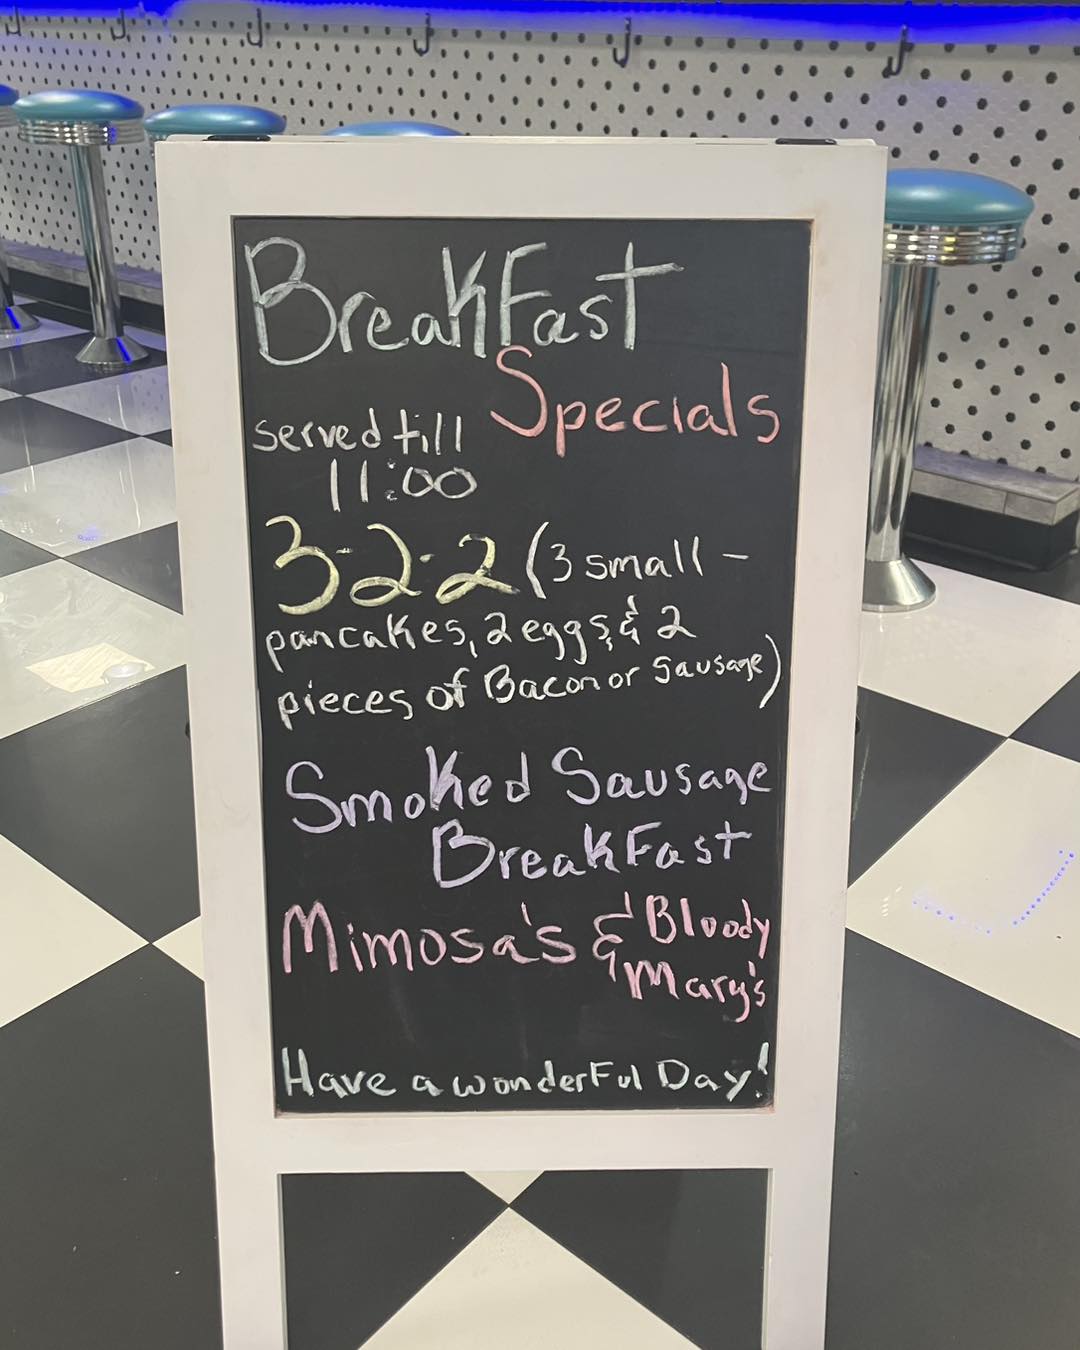 BreakFast
Specials
served till
11:00
3-2-2 (3 small -
pancakes, 2 eggs, & 2
pieces of Bacon or Sausage)
Smoked Sausage
BreakFast
Mimosa's & Bloody
Mary's
Have a wonderFul Day!